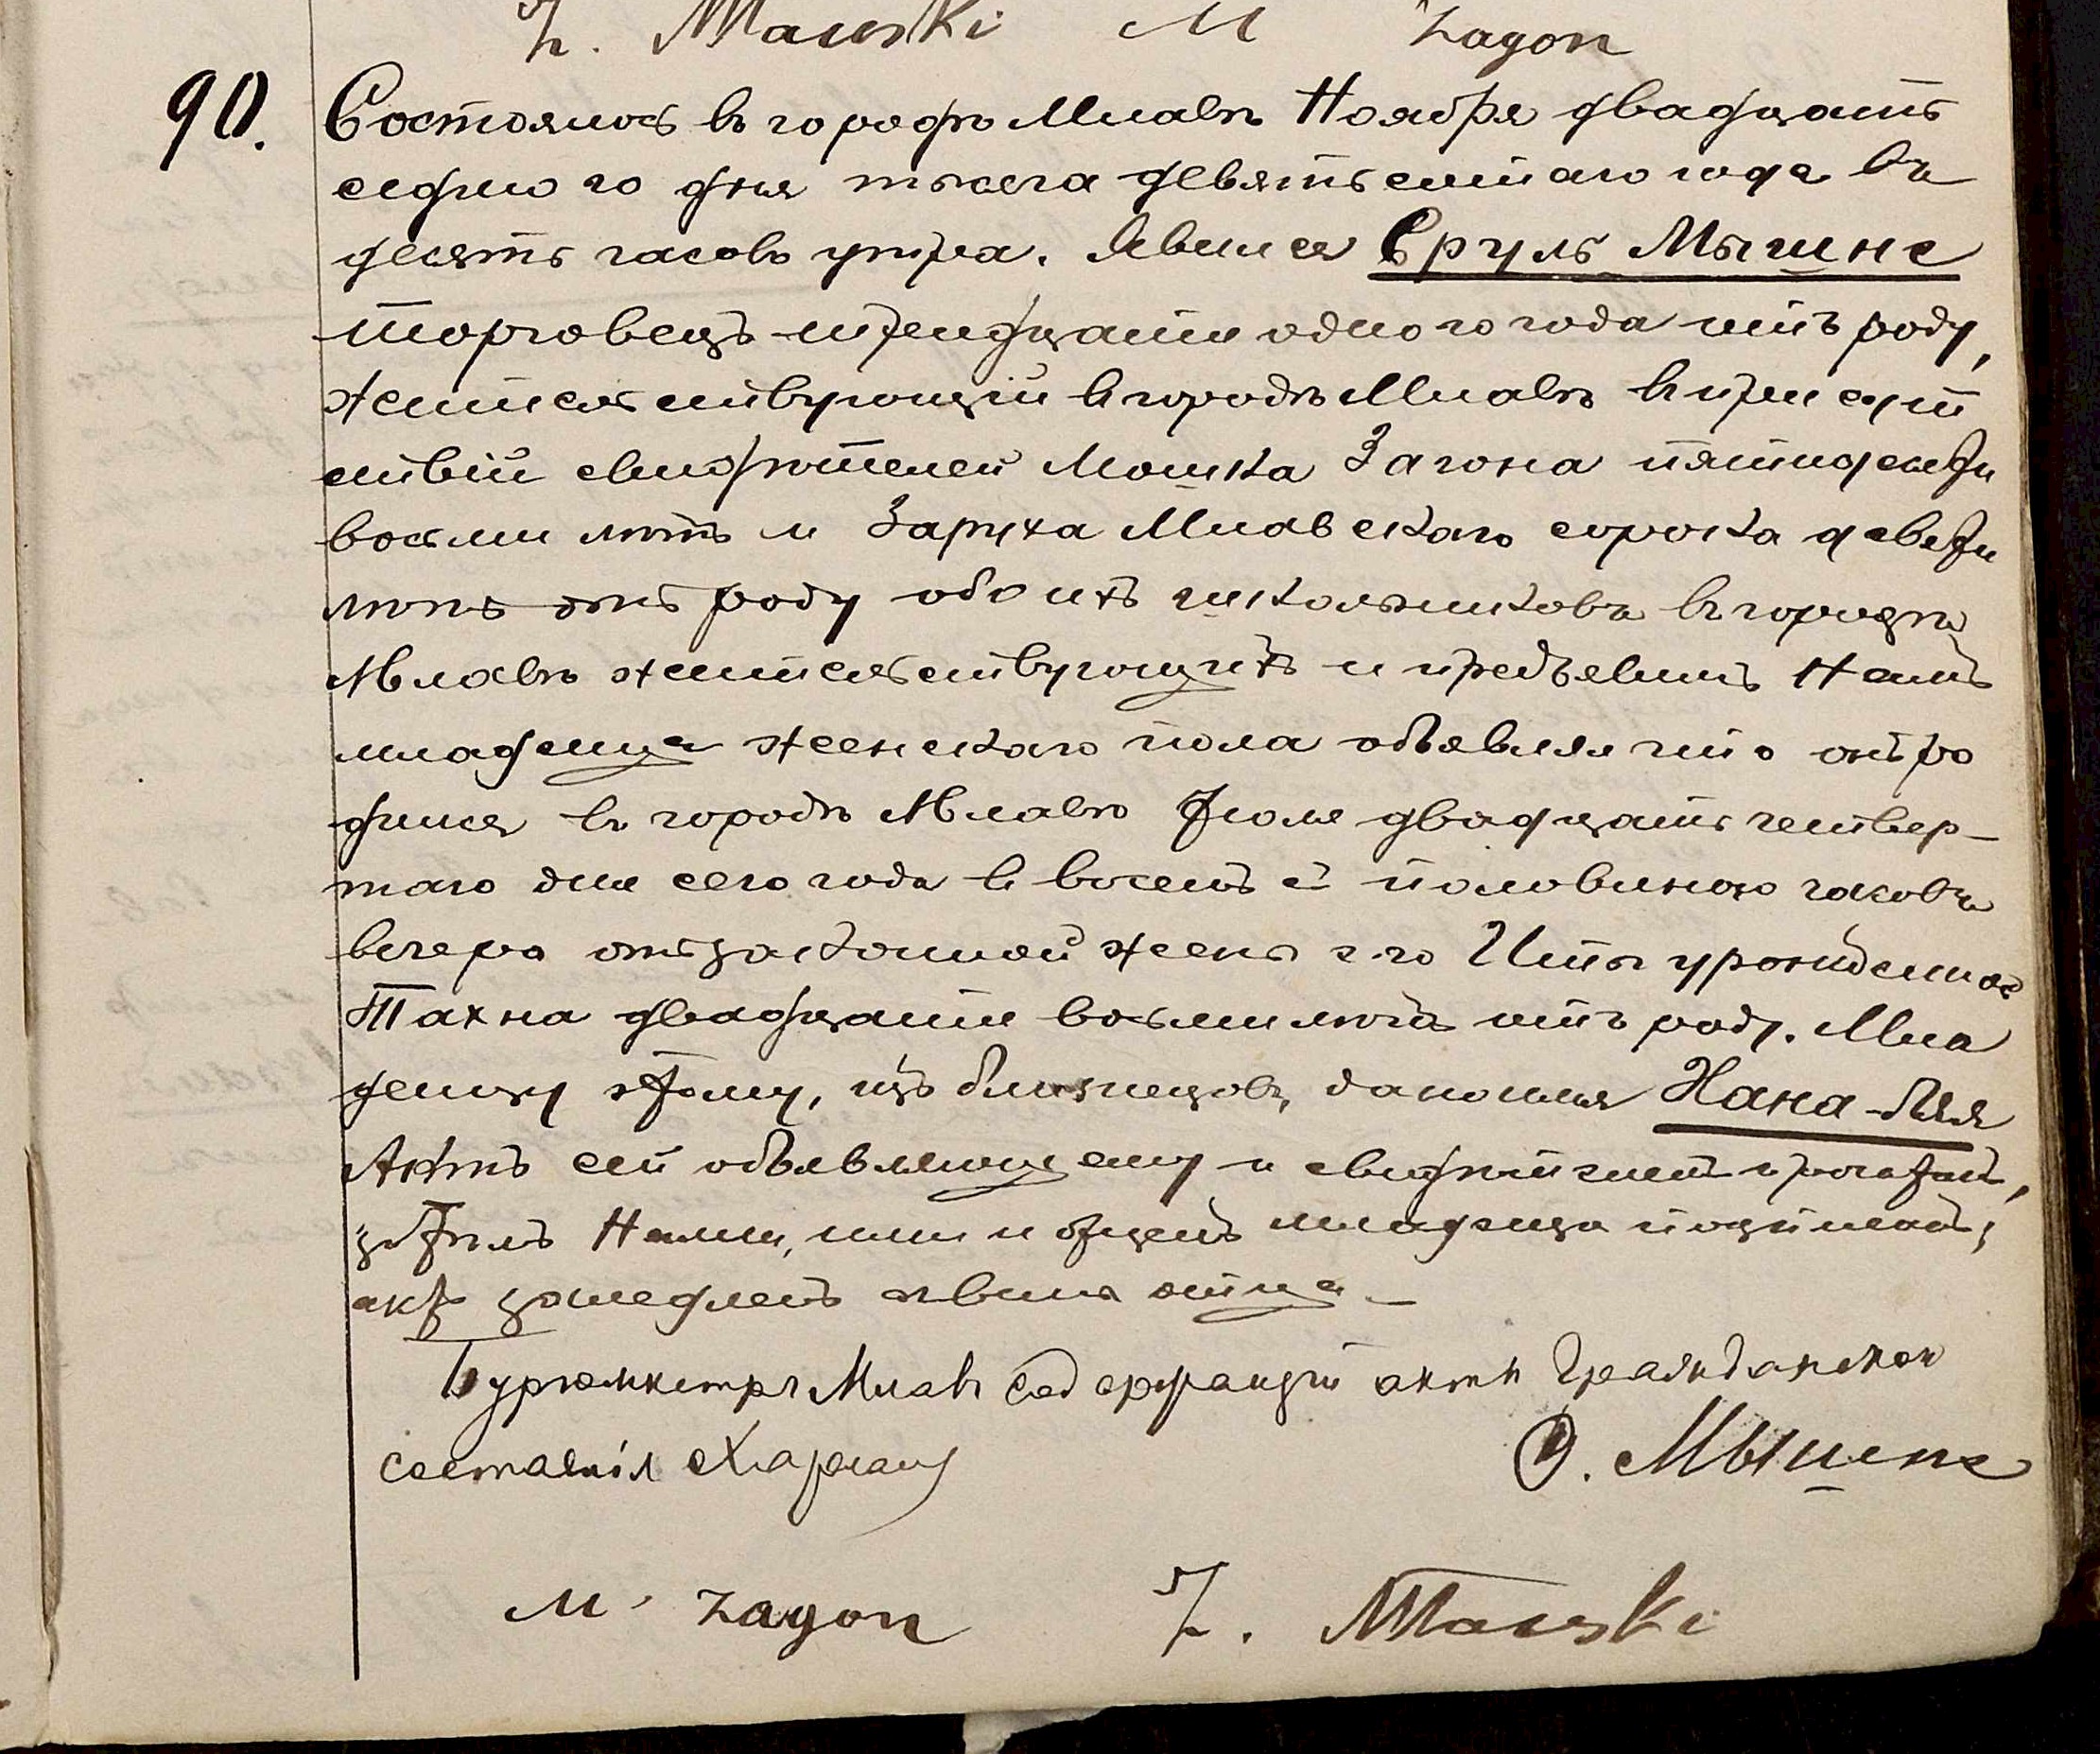 Z. Mławski M Zagon
90. Состоялось въ городѣ Млавѣ Ноября двадцать
седьмого дня тысяча девятьсотаго года въ
десять часовъ утра. Явился Сруль Мышне
торговецъ тридцати одного года отъ роду,
жительствующій въ городѣ Млавѣ въ присут
ствіи свидѣтелей Мошка Загона пятидесяти
восьми лѣтъ и Заруха Млавскаго сорока девяти
лѣтъ отъ роду обоихъ школьниковъ въ городѣ
Млавѣ жительствующихъ и предъявилъ Намъ
младенца женскаго пола объявляя что онъ ро
дился въ городѣ Млавѣ Іюля двадцать четвер-
таго дня сего года въ восемь съ половиною часовъ
вечера отъ законной жены его Иты урожденной
Тахна двадцати восьми лѣтъ отъ роду. Мла
денцу этому, изъ близнецовъ, дано имя Хана-Бля
Актъ сей объявляющему и свидѣтелямъ прочитанъ,
затѣмъ Нами, ими и отцемъ младенца подписанъ,
актъ замедленъ отъ вины отца.-
Бургомистръ Млавы Содержащій акты Гражданскаго
состоянія
С. Мышне
M. Zagon Z. Mławski